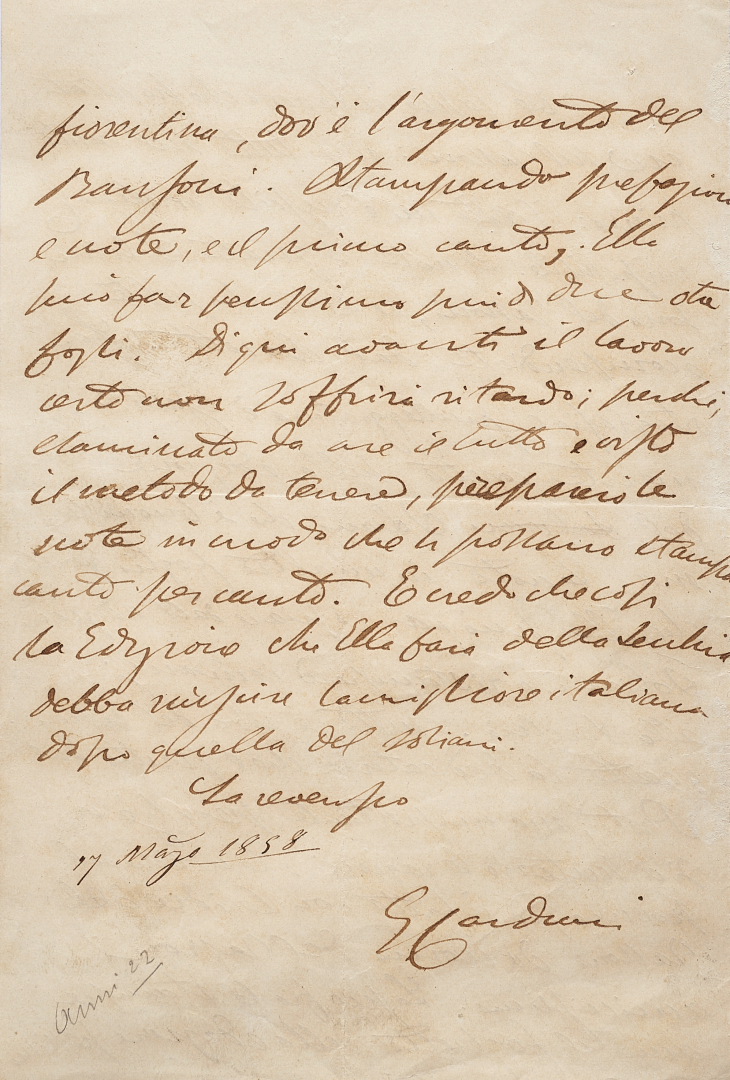 fiorentina, dov'è l'argomento del
Ranfoni. Stampando prefazion
e note, e il primo canto, Ella
può far benissimo più di due
fogli. Di qui avanti il lavoro
certo non soffrirà ritardo; perchè,
esaminato da me il tutto e visto
il metodo da tenere, preparerò le
note in modo che si possano stampa
canto per canto. E credo che così
la Edizione che Ella farà della Secchia
debba riuscire la migliore italiana
dopo quella del Soliani.
La reverisco
17 Marzo 1858
G Carducci
Anni 22